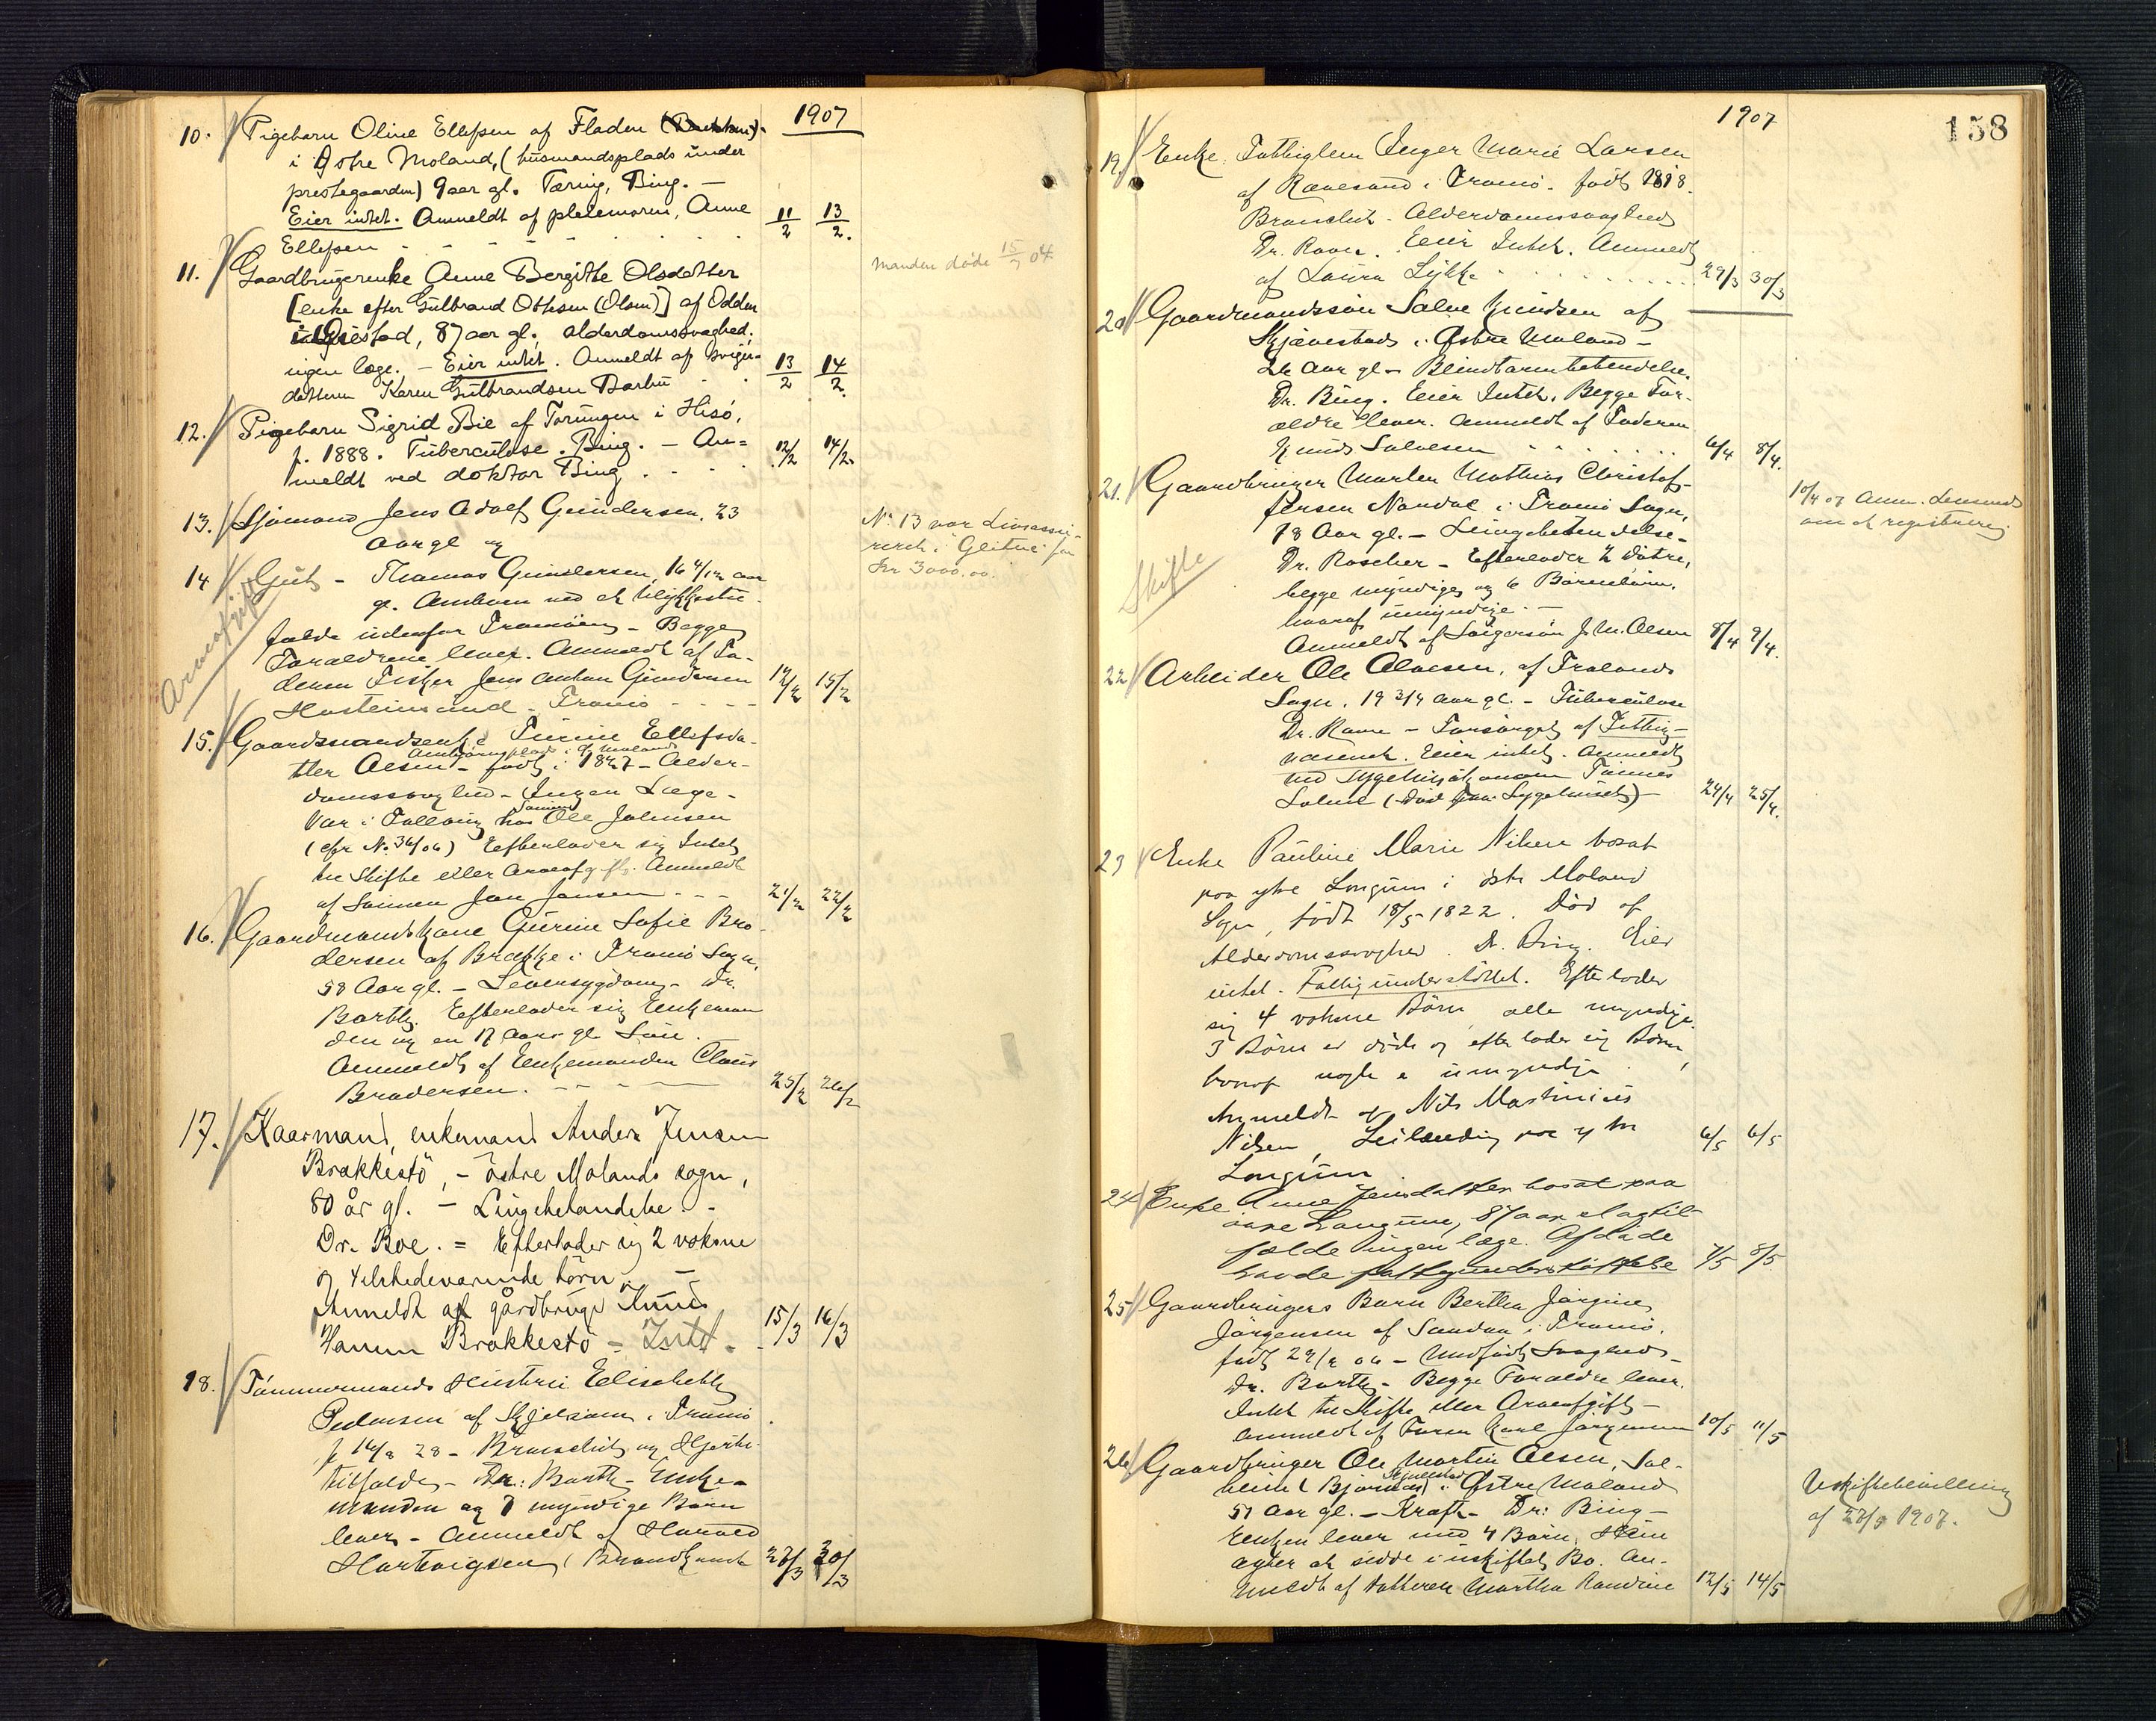 1907
10. Pigebarn Oline Ellefsen af Fladen
i Østre Moland, (husmandsplads under
prestegaarden) 9 aar gl. Tæring, Bing. —
Eier intet. Anmeldt af pleiemoren, Anne 11/2 13/2.
Ellefsen
11. Gaardbrugerenke Anne Bergithe Olsdatter
Manden døde 15/7 04
[enke efter Gulbrand Othsen (Olsen)] af Odden
i Øiestad, 87 aar gl., alderdomssvaghed,
ingen læge. — Eier intet. Anmeldt af sviger-
datteren Karen Gulbrandsen Barbu 13/2 14/2.
12. Pigebarn Sigrid Bie af Torungen i Hisø,
f. 1888. Tuberculose. Bing. — An=
meldt ved doktor Bing. 12/2 14/2.
13. Sjømand Jens Adolf Gundersen, 23
aar gl og
No 13 var Livsassu-
reret i Glitne for
Kr 3000.00.
14 Gut — Thomas Gundersen, 16 4/12 aar
gl. Omkom ved et Ulykkestil-
fælde udenfor Tromøen — Begge
Forældrene lever. Anmeldt af Fa-
deren Fisker Jens Anton Gundersen 14/2 15/2
Hasteinsund — Tromø
Arveafgift
15. Gaardmandsenke Turine Ellefsda-
i Ø. Moland
tter Olsen — født i 1827 — Alder-
domssvaghed — Ingen Læge —
Sønnen
Var i Follaug hos Ole Johnsen
(cfr No. 36/06) Efterlader sig Intet
til Skifte eller Arveafgift. Anmeldt
af Sønnen Jan Jansen 21/2 22/2
16. Gaardmandskone Gurine Sofie Bro-
dersen af Brække i Tromø Sogn,
58 Aar gl. — Leversygdom — Dr.
Barth. Efterlader sig Enkeman
den og en 17 aar gl Søn.
Anmeldt af Enkemanden Claus
Brodersen. 25/2 26/2
17. Kaarmand, enkemand Anders Jensen
Brækkestø, — østre Molands sogn,
80 år gl. — Lungebetændelse. —
Dr. Boe. = Efterlader sig 2 voksne
og tilstedeværende børn. —
Anmeldt af gårdbruger Knud
Hansen Brækkestø — Intet. 15/3 16/3
18. Tømmermands Hustru Elisabeth
Pedersen af Skjelsøen i Tromø
f 14/8 28 — Bronchit og Hjerte-
tilfælde — Dr: Barth — Enke-
manden og 7 myndige Børn
lever — Anmeldt af Harald
Hartvigsen, Brandkaade 27/3 30/3
158
1907
19. Enke Fattiglem Inger Marie Larsen
af Rævesand i Tromø. født 1818.
Bronchit — Alderdomssvaghed
Dr. Ravn. Eier Intet. Anmeldt
af Laura Lykke 29/3 30/3
20 Gaardmandssøn Salve Knudsen af
Skjævestad i Østre Moland —
26 Aar gl — Blindtarmbetændelse.
Dr. Bing. Eier Intet. Begge For-
ældre lever. Anmeldt af Faderen
Knud Salvesen 6/4 8/4.
21. Gaardbruger Morten Mathias Christof-
fersen Nardal i Tromø Sogn,
78 Aar gl. — Lungebetændelse —
Dr. Roscher — Efterlader 2 Døtre,
begge myndige og 6 Børnebørn,
hvoraf umyndige. —
Anmeldt af Svigersøn J. M. Olsen 8/4 9/4.
Skifte
10/4 07 Anm. Lensmd
om at registrere.
22 Arbeider Ole Olavesen, af Froland
Sogn, 19 3/4 aar gl. — Tuberculose
Dr. Ravn — Forsørget af Fattig-
væsenet. Eier intet. Anmeldt
ved Sygehusøkonom Tønnes
Salve (Død paa Sygehuset) — 24/4 25/4.
23 Enke Pauline Marie Nilsen bosat
paa ytre Longum i østr Moland
Sogn, født 18/5 1822. Død af
Alderdomssvaghed. Dr. Bing. Eier
intet. Fattigunderstøttet. Efterlader
sig 4 voksne Børn alle myndige.
3 Børn er døde og efterlader sig Børn,
hvoraf nogle er umyndige.
Anmeldt af Nils Martinius
Nilsen, Leilænding paa ytre 6/5 6/5
Longum
24 Enke Anne Jensdatter bosat paa
øvre Longum, 87 aar slagtil-
fælde ingen læge. Afdøde
havde fattigunderstøttelse 7/5 8/5
25 Gaardbrugers Barn Bertha Jørgine
Jørgensen af Sandum i Tromø.
født 29/12 06 — Medfødt Svaghed —
Dr. Barth — Begge Forældre lever.
Intet til Skifte eller Arveafgift —
Anmeldt af Faren Karl Jørgensen 10/5 11/5
26 Gaardbruger Ole Martin Olsen, Sol-
i Østre Moland
57 Aar gl. — Kræft — Dr: Bing —
Enken lever med 4 Børn. Hun
agter at sidde i uskiftet Bo. An-
meldt af Datteren Martha Randine 12/5 14/5
Uskiftebevilling
af 27/5 1907.